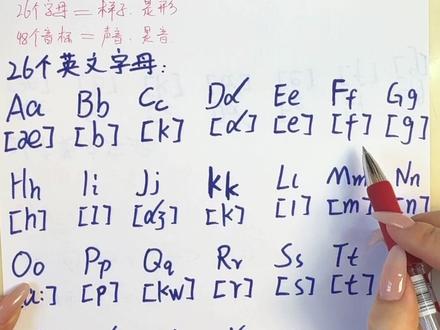 26个字母 = 样子.是形
48个音标 = 声音.是音
26个英文字母:
Aa Bb Cc Dd Ee Ff Gg
[æ] [b] [k] [d] [e] [f] [g]
Hh Ii Jj Kk Ll Mm Nn
[h] [I] [dʒ] [k] [l] [m] [n]
Oo Pp Qq Rr Ss Tt
[p] [kw] [r] [s] [t]